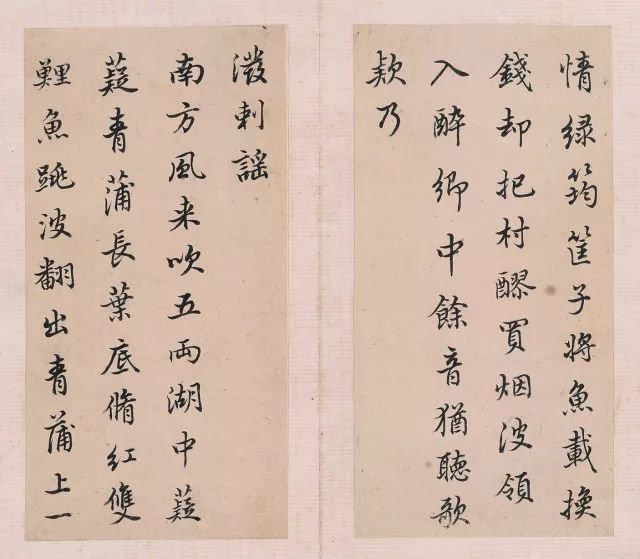 情綠筠筐子將魚載換
錢却把村醪買烟波領
入醉鄉中餘音猶聽歌
欵乃
潑剌謡
南方風来吹五兩湖中薿
薿青蒲長葉底脩紅雙
鯉魚跳波翻出青蒲上一